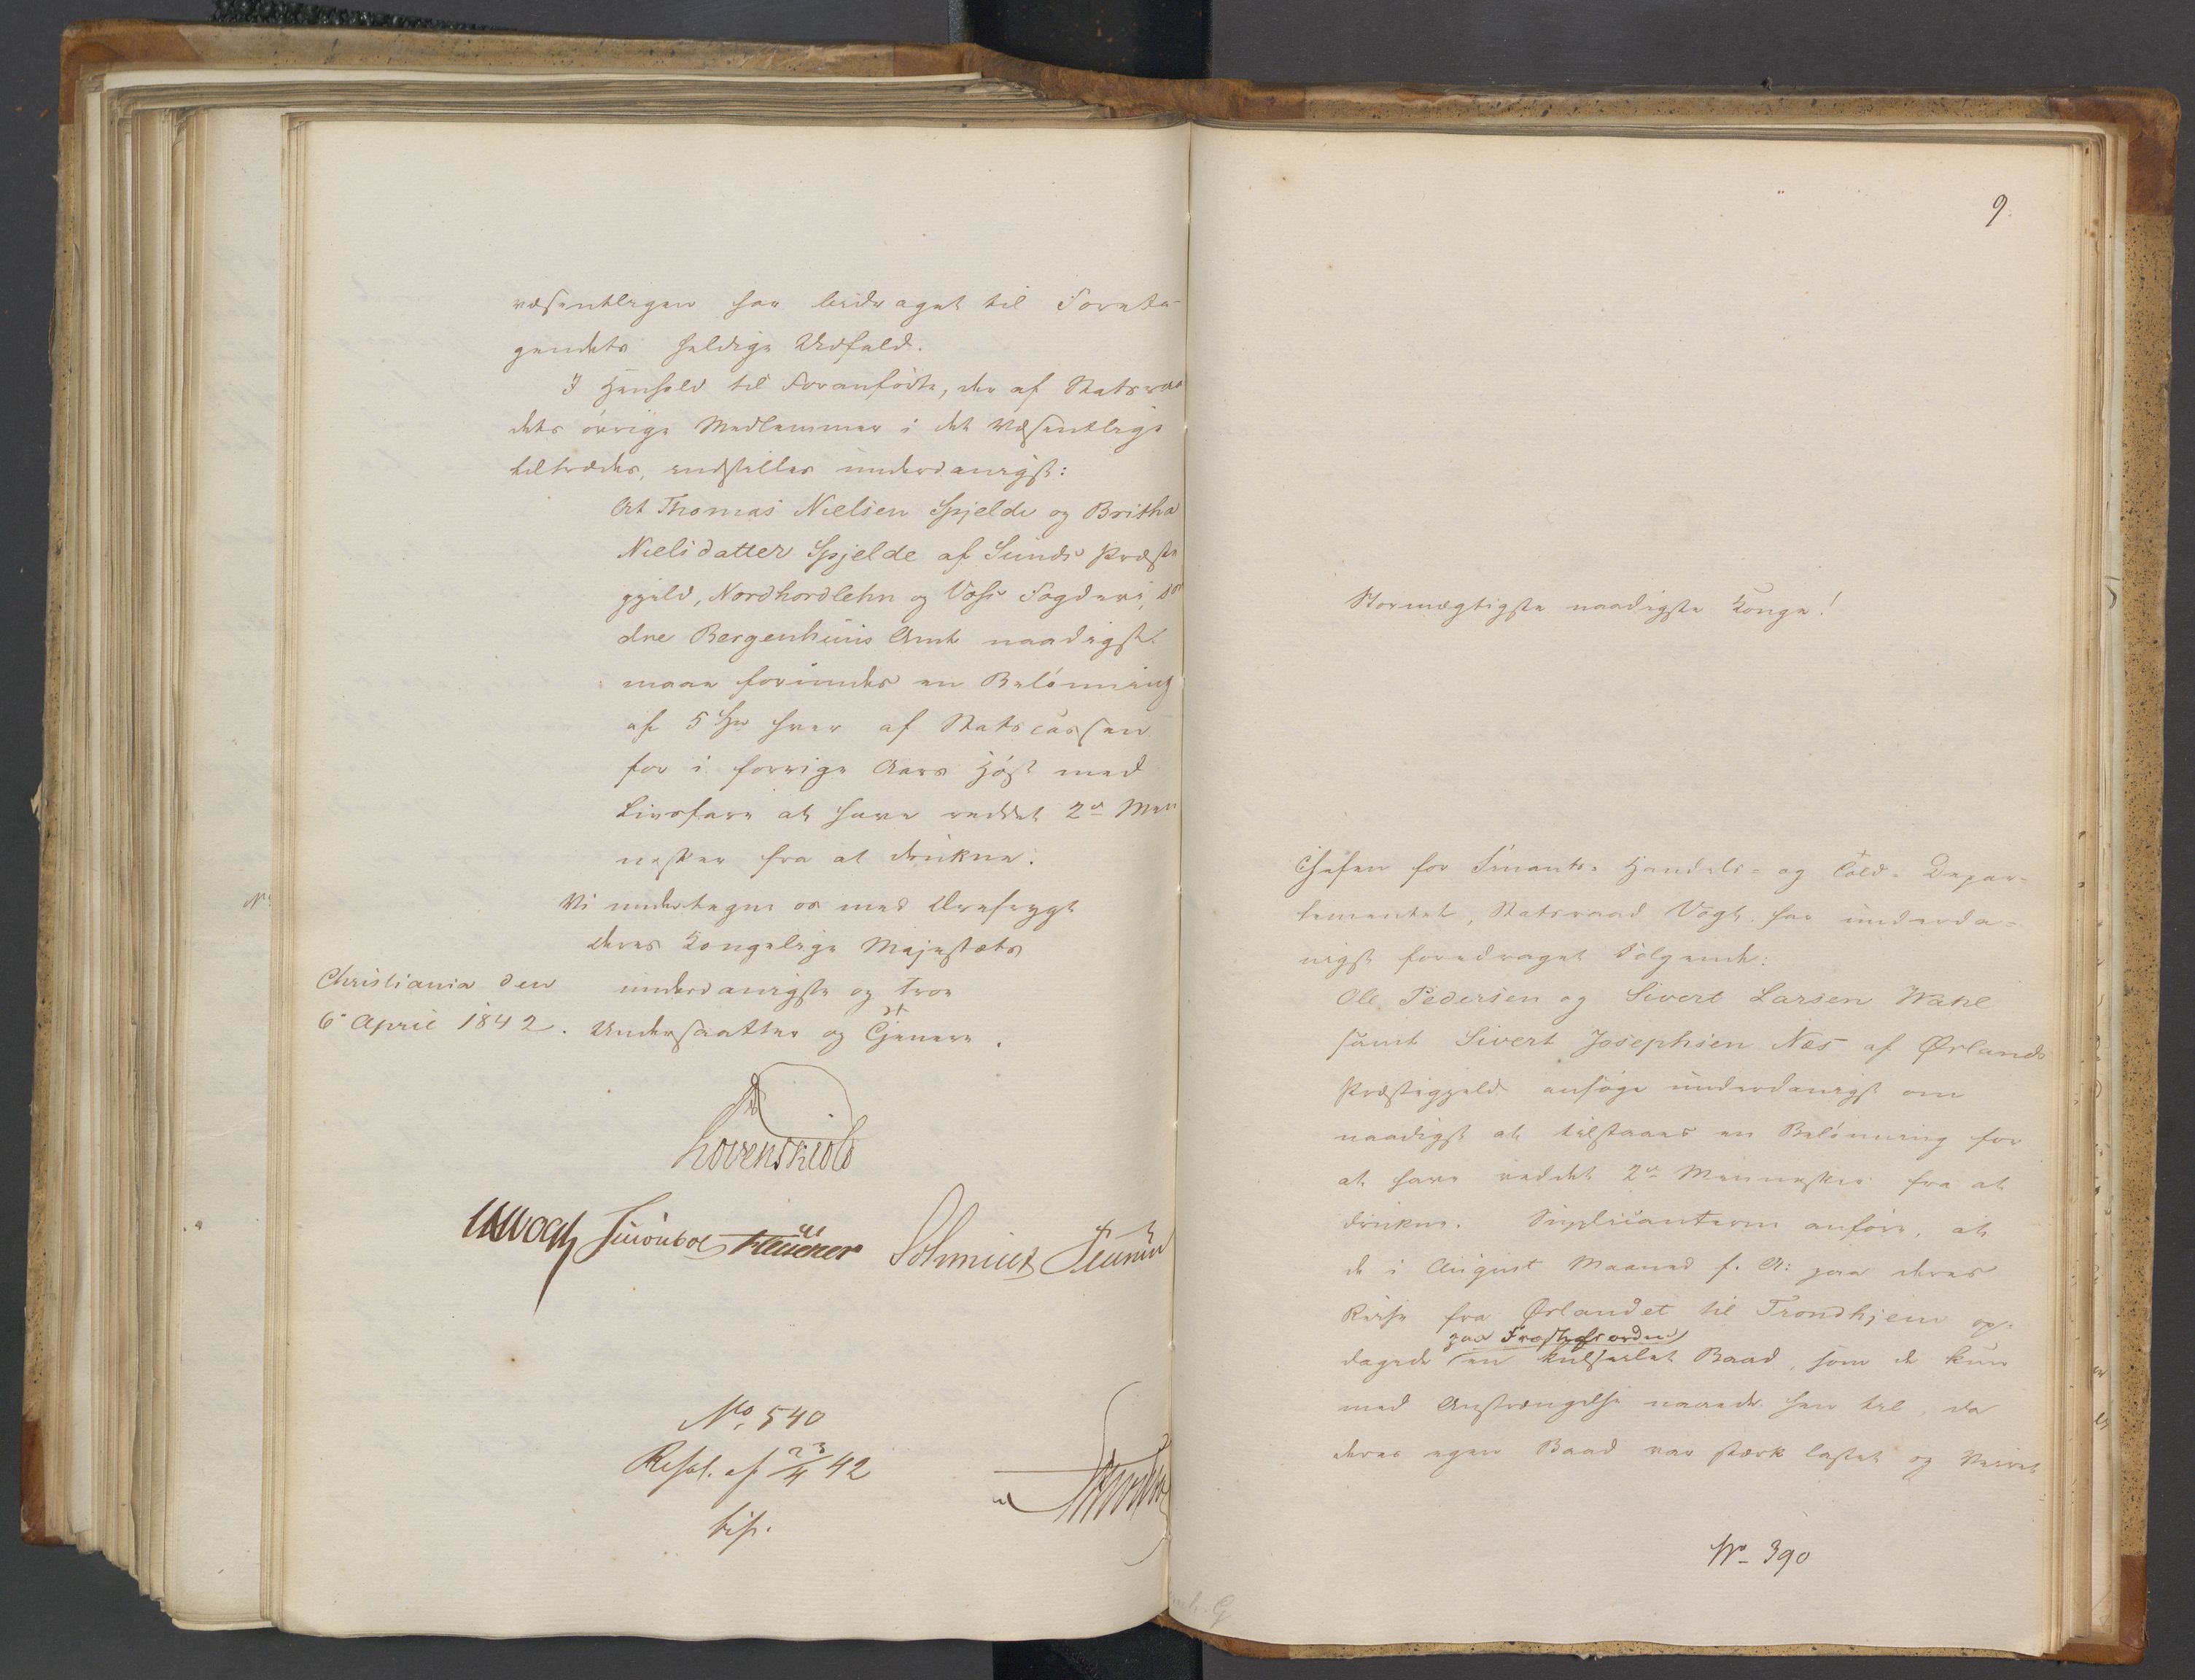 væsentligen har bidraget til Foreta-
gendets heldige Udfald.
I Henhold til Foranførte, der af Statsraa
dets øvrige Medlemmer i det Væsentlige
tiltrædes, indstilles underdanigst:
At Thomas Nielsen Spjelde og Britha
Nielsdatter Spjelde af Sunds Præste
gjeld, Nordhordlehn og Voss Fogderi, Sø
dre Bergenhuus Amt naadigst
maae forundes en Belønning
af 5 Spd hver af Statscassen
for i forrige Aars Høst med
Livsfare at have reddet 2de Men
nesker fra at drukne.
Vi undertegne os med Ærefrygt
Deres Kongelige Majestæts
Christiania den underdanigste og troe
6 April 1842. Undersaatter og Tjenere.
Løvenskiold
Vogt Schmidt
No 540
Resol. af 23/4 42
bif.
9.
Stormægtigste naadigste Konge!
Chefen for Finants- Handels- og Told- Depar-
tementet, Statsraad Vogt, har underda-
nigst foredraget Følgende:
Ole Pedersen og Sivert Larsen Wahl
samt Sivert Josephsen Næs af Ørlands
Præstegjeld ansøge underdanigst om
naadigst at tilstaaes en Belønning for
at have reddet 2de Mennesker fra at
drukne. Supplicanterne anføre, at
de i August Maaned f. A. paa deres
Reise fra Ørlandet til Trondhjem op-
paa
dagede en kulseilet Baad, som de kun
med Anstrængelse naaede hen til, da
deres egen Baad var stærk lastet og Veiret
No 390